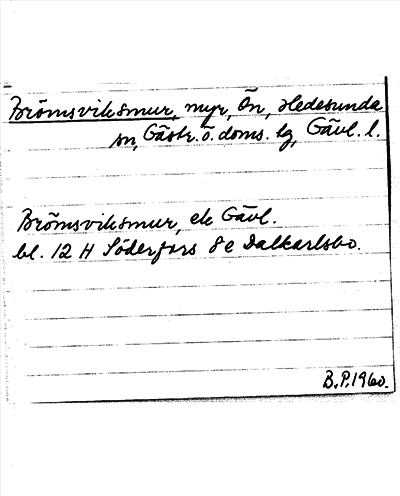 Brömsviksmur, myr, Ön, Hedesunda
sn, Gästr. ö. doms. lg, Gävl. l.
Brömsviksmur, ek Gävl.
bl. 12 H Söderfors 8 e Dalkarlsbo.
B.P. 1960.